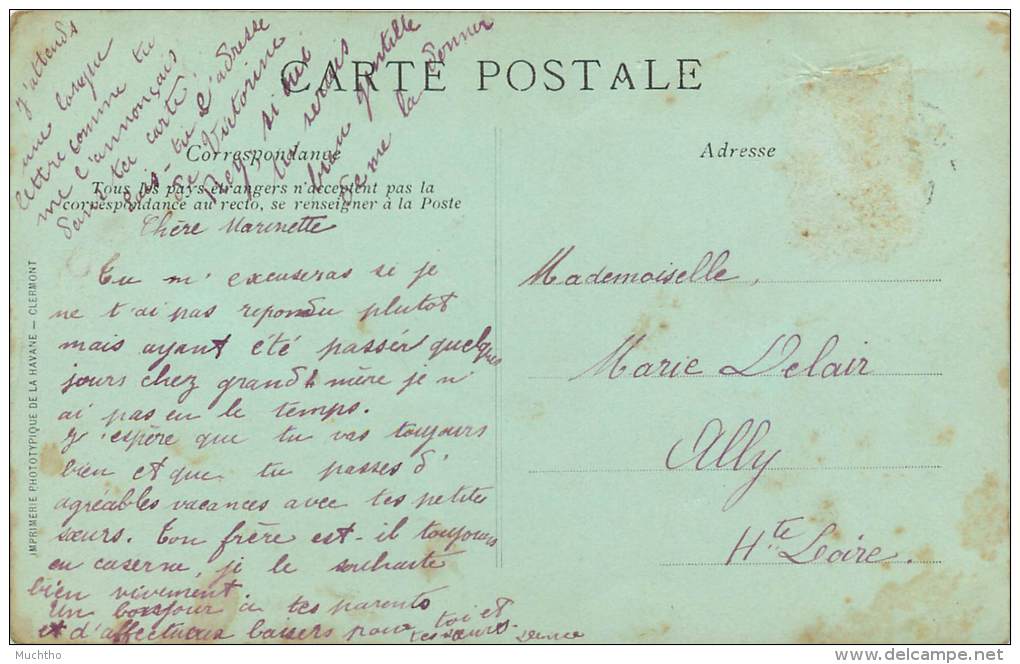 CARTE POSTALE
Correspondance
Tous les pays étrangers n'acceptent pas la
correspondance au recto, se renseigner à la Poste
Chère Marinette
Tu m'excuseras si je
ne t'ai pas repondu plutot
mais ayant été passér quelques
jours chez grand'mère je n'
ai pas eu le temps.
J'espère que tu vas toujours
bien et que tu passes d'
agréables vacances avec tes petites
sœurs. Ton frère est-il toujours
en caserne, je le souhaite
bien vivement.
Un bonjour à tes parents
et d'affectueux baisers pour toi et
tes sœurs.
J'attends
une longue
lettre comme tu
me l'annonçais
dans ta carte
sais tu l'adresse
de Victorine
Rey, si oui
tu serais
bien gentille
de me la donner
Adresse
Mademoiselle,
Marie Delair
Ally
Hte Loire.
IMPRIMERIE PHOTOTYPIQUE DE LA HAVANE — CLERMONT
Muchtho
delcampe.net